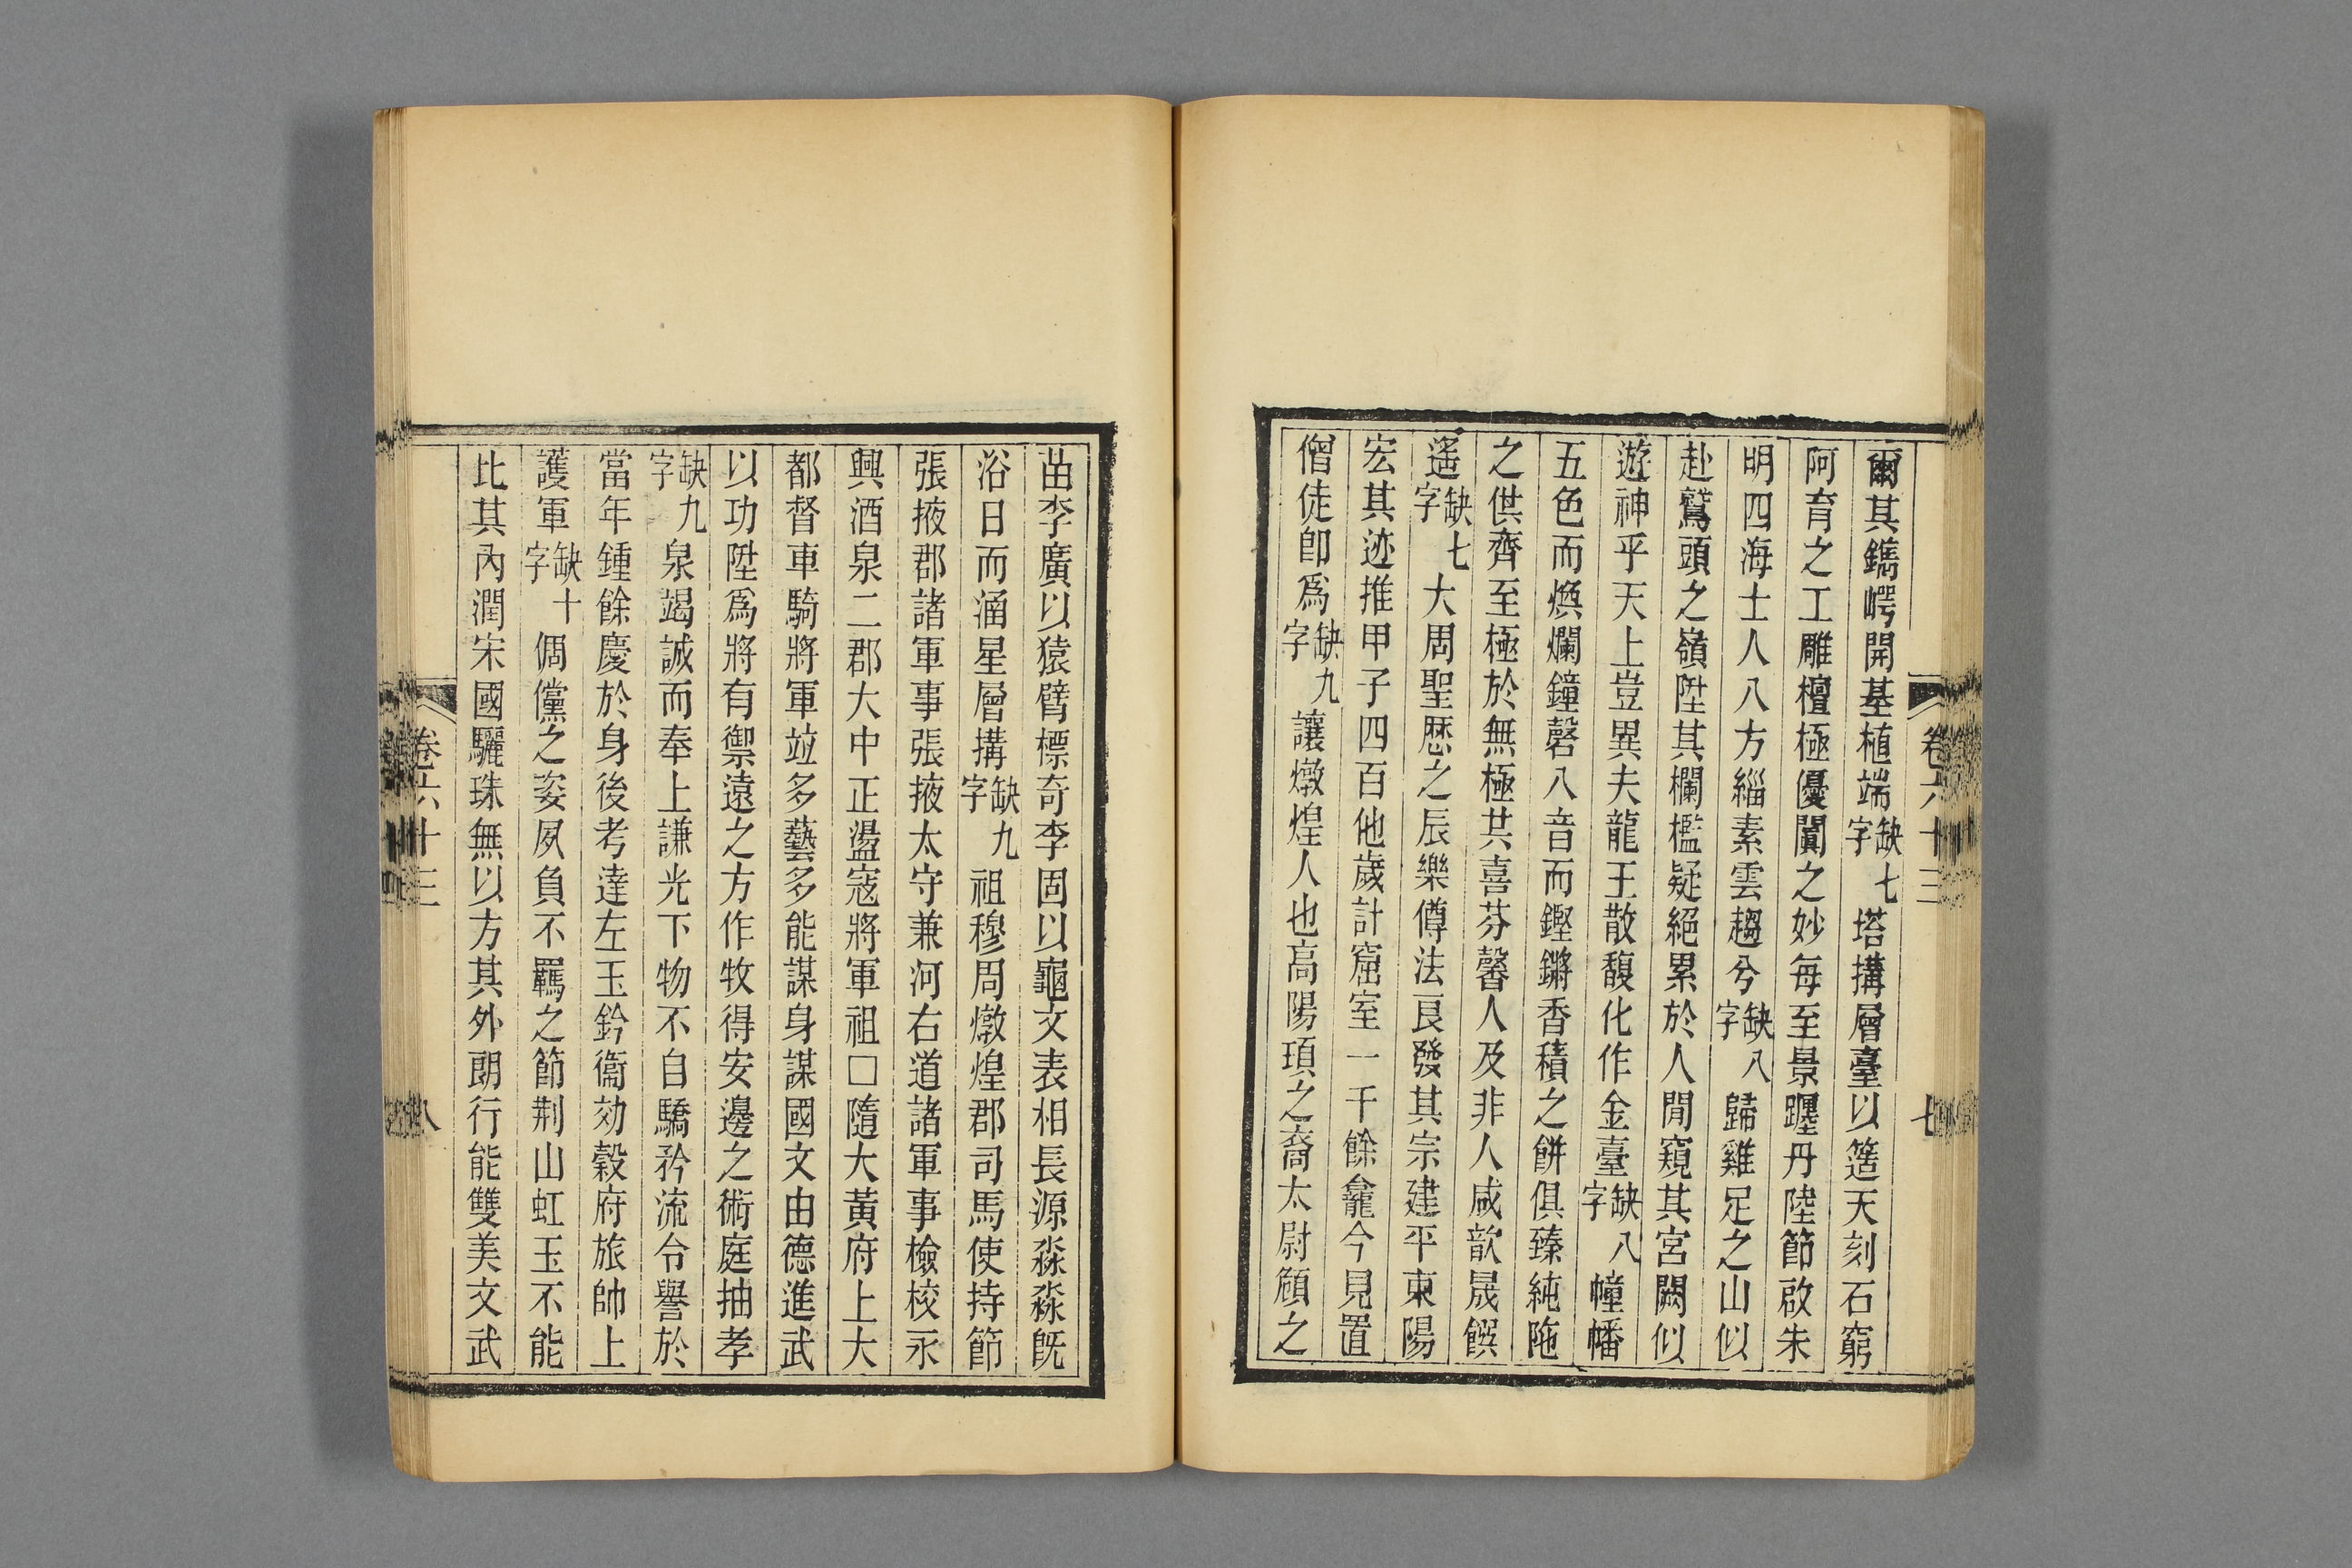 爾其鐫崿開基植端缺七字塔搆層臺以簉天刻石窮
阿育之工雕檀極優闐之妙每至景躔丹陸節啟朱
明四海士人八方緇素雲趨兮缺八字歸雞足之山似
赴鷲頭之嶺陞其欄檻疑絕累於人閒窺其宮闕似
遊神乎天上豈異夫龍王散馥化作金臺缺八字幢幡
五色而煥爛鐘磬八音而鏗鏘香積之餅俱臻純陁
之供齊至極於無極共喜芬馨人及非人咸歆晟饌
遙缺七字大周聖厯之辰樂僔法良發其宗建平東陽
宏其迹推甲子四百他歲計窟室一千餘龕今見置
僧徒卽爲缺九字讓燉煌人也高陽頊之裔太尉頠之
卷六十三
七
苗李廣以猿臂標奇李固以龜文表相長源淼淼旣
浴日而涵星層搆缺九字祖穆周燉煌郡司馬使持節
張掖郡諸軍事張掖太守兼河右道諸軍事檢校永
興酒泉二郡大中正盪寇將軍祖□隨大黃府上大
都督車騎將軍竝多藝多能謀身謀國文由德進武
以功陞爲將有禦遠之方作牧得安邊之術庭抽孝
缺九字泉竭誠而奉上謙光下物不自驕矜流令譽於
當年鍾餘慶於身後考達左玉鈐衞効穀府旅帥上
護軍缺十字倜儻之姿夙負不羈之節荆山虹玉不能
比其內潤宋國驪珠無以方其外朗行能雙美文武
卷六十三
八